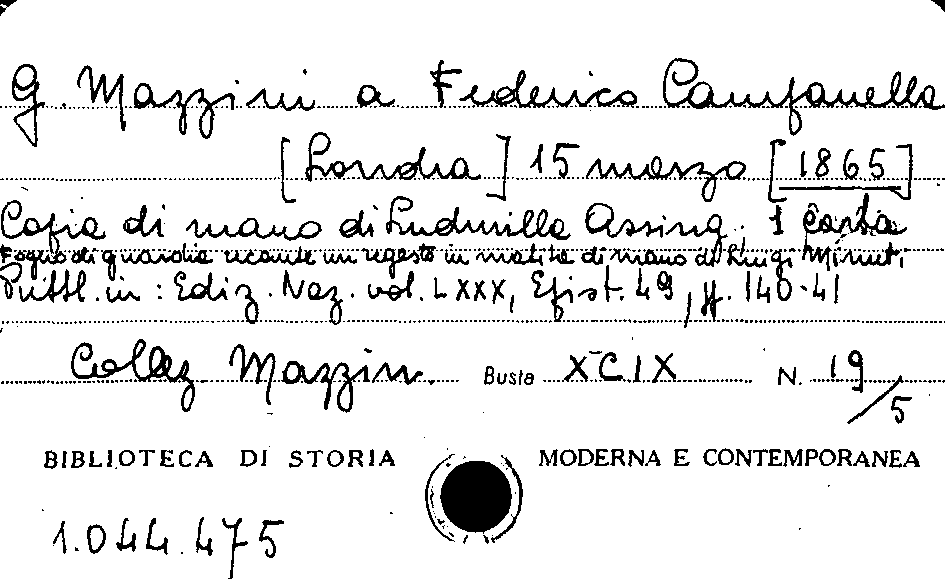 G. Mazzini a Federico Campanella
[Londra] 15 marzo [1865]
Copia di mano di Ludmilla Assing. 1 carta
Foglio di guardia recante un regesto in matita di mano di Luigi Minuti
Pubbl. in: Ediz. Naz. vol. LXXX, Epist. 49, pp. 140-41
Collez. Mazzini. Busta XCIX N. 19/5
BIBLIOTECA DI STORIA MODERNA E CONTEMPORANEA
1.044.475